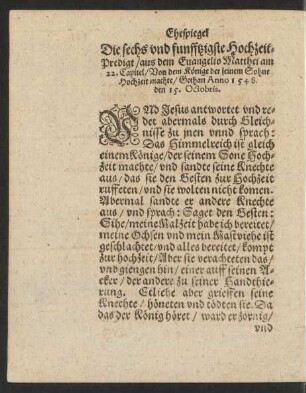 Ehespiegel
Die sechs vnd funfftzigste Hochzeit-
Predigt / aus dem Euangelio Matthei am
22. Capitel / Von dem Könige der seinem Sohne
Hochzeit machte / Gothan Anno 1548.
den 15. Octobris.
VNd Jesus antwortet vnd re-
det abermals durch Gleich-
nisse zu jnen vnnd sprach:
Das Himmelreich ist gleich
einem Könige / der seinem Sone Hoch-
zeit machte / vnd sandte seine Knechte
aus / das sie den Gesten zur Hochzeit
ruffeten / vnd sie wolten nicht komen.
Abermal sandte er andere Knechte
aus / vnd sprach: Saget den Gesten:
Sihe / meine Malzeit habe ich bereitet /
meine Ochsen vnd mein Mastviehe ist
geschlachtet / vnd alles bereitet / kompt
zur hochzeit / Aber sie verachteten das /
vnd giengen hin / einer auff seinen A-
cker / der andere zu seiner Handthie-
rung. Etliche aber grieffen seine
Knechte / höneten vnd tödten sie. Da
das der König höret / ward er zornig /
vnd